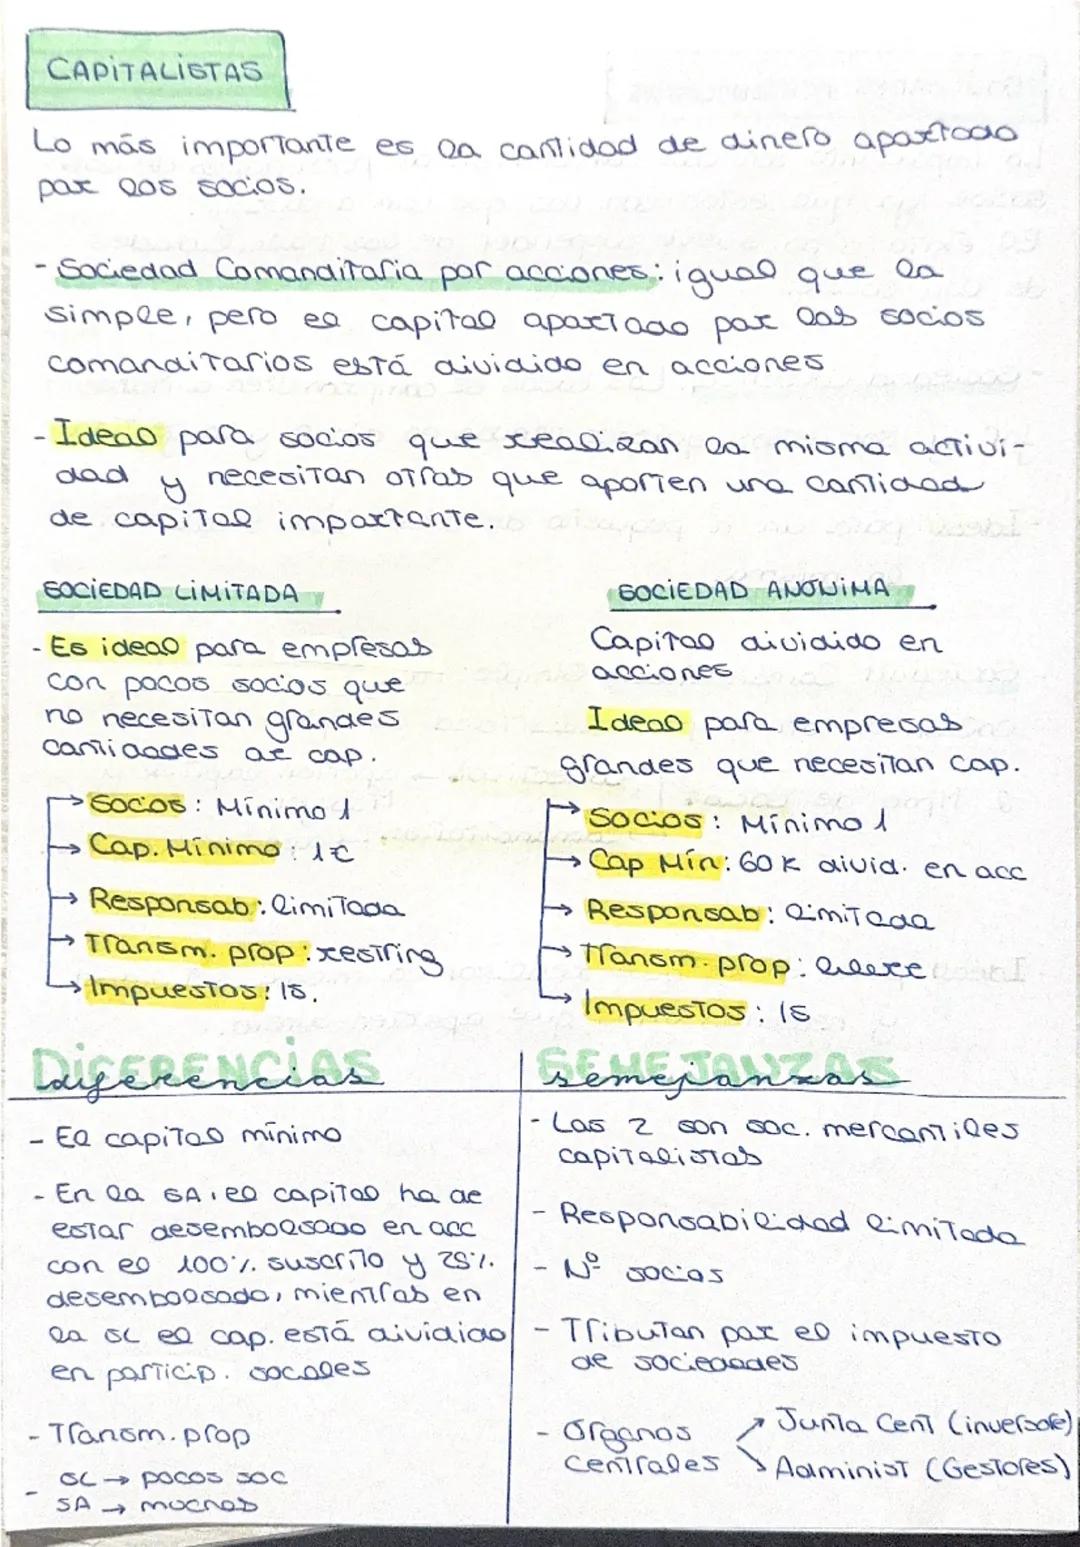 CAPITALISTAS
Lo más importante es la cantidad de dinero aportado
por los socios.
- Sociedad Comanditaria por acciones: igual que la
simple, pero el capital aportado por los socios
comanditarios está dividido en acciones
- Ideal para socios que realizan la misma activi-
dad y necesitan otras que aporten una cantidad
de capital importante.
SOCIEDAD LIMITADA
- Es ideal para empresas
con pocos socios que
no necesitan grandes
cantidades de cap.
→ Socos: Mínimo 1
→ Cap. Mínimo: 1€
→ Responsab: limitada
→ Transm. prop: restring
→ Impuestos: IS.
SOCIEDAD ANONIMA
Capital dividido en
acciones
Ideal para empresas
grandes que necesitan cap.
→ Socios: Mínimo 1
→ Cap Mín: 60K divid. en acc
→ Responsab: limitada
→ Transm. prop: libre
→ Impuestos: IS
DIFERENCIAS
diferencias
- El capital mínimo
- En la SA, el capital ha de
estar desembolsado en acc
con el 100% suscrito y 25%
desembolsado, mientras en
la SL el cap. está dividido
en particip. socales
- Transm. prop
- SL → pocos soc
SA → muchos
SEMEJANZAS
semejanzas
- Las 2 son soc. mercantiles
capitalistas
- Responsabilidad limitada
- Nº socios
- Tributan por el impuesto
de sociedades
- Organos → Junta Cent (inversore)
Centrales → Administ (Gestores)